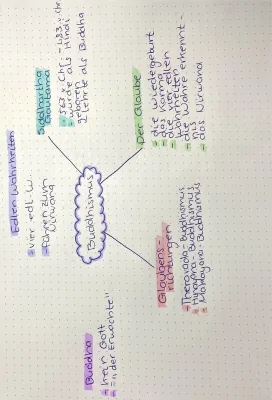 Buddhismus
Siddhartha
Gautama
- 563 v. Chr. - 483 v. Chr.
- wurde als Hindi
geboren
- lehrte als Buddha
Der Glaube
- die wiedegeburt
- das Karma
- die vier edlen
Wahrheiten
- die Wahre erkennt-
nis
- das Nirwana
Edlen Wahrheiten
- vier edl. W...
- führen zum
Nirwana
Glaubens-
richtungen
- Theravada-Buddhismus
- Hinayana-Buddhismus
- Mahayana-Buddhismus
Buddha
- kein Gott
- = "der Erwachte"